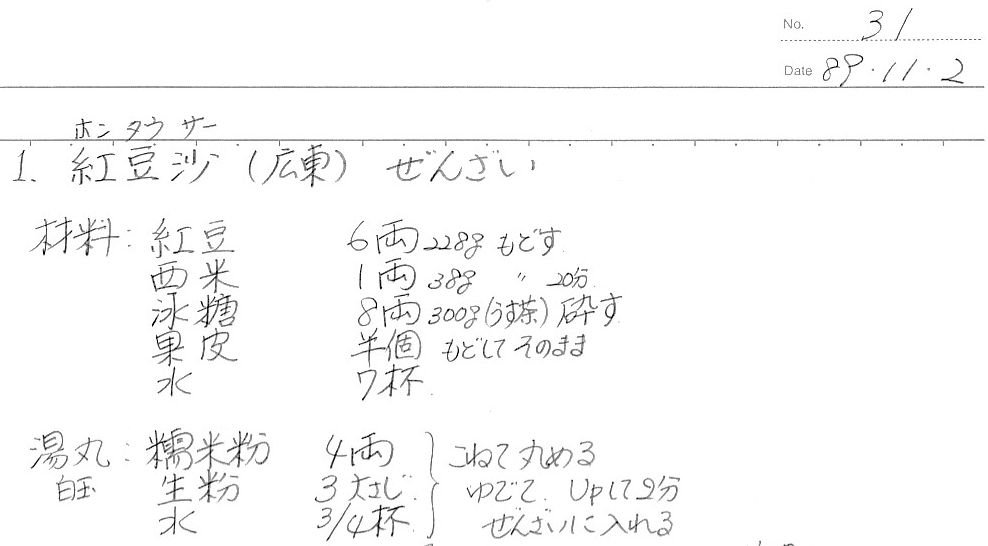 No. 31
Date 89・11・2
ホン タウ サー
1. 紅豆沙(広東) ぜんざい
材料: 紅豆 6両 228g もどす
西米 1両 38g 〃 20分
氷糖 8両 300g(うす茶) 砕す
果皮 半個 もどしてそのまま
水 7杯
湯丸: 糯米粉 4両 こねて丸める
白玉 生粉 3大さじ ゆでて、Upして2分
水 3/4杯 ぜんざいに入れる